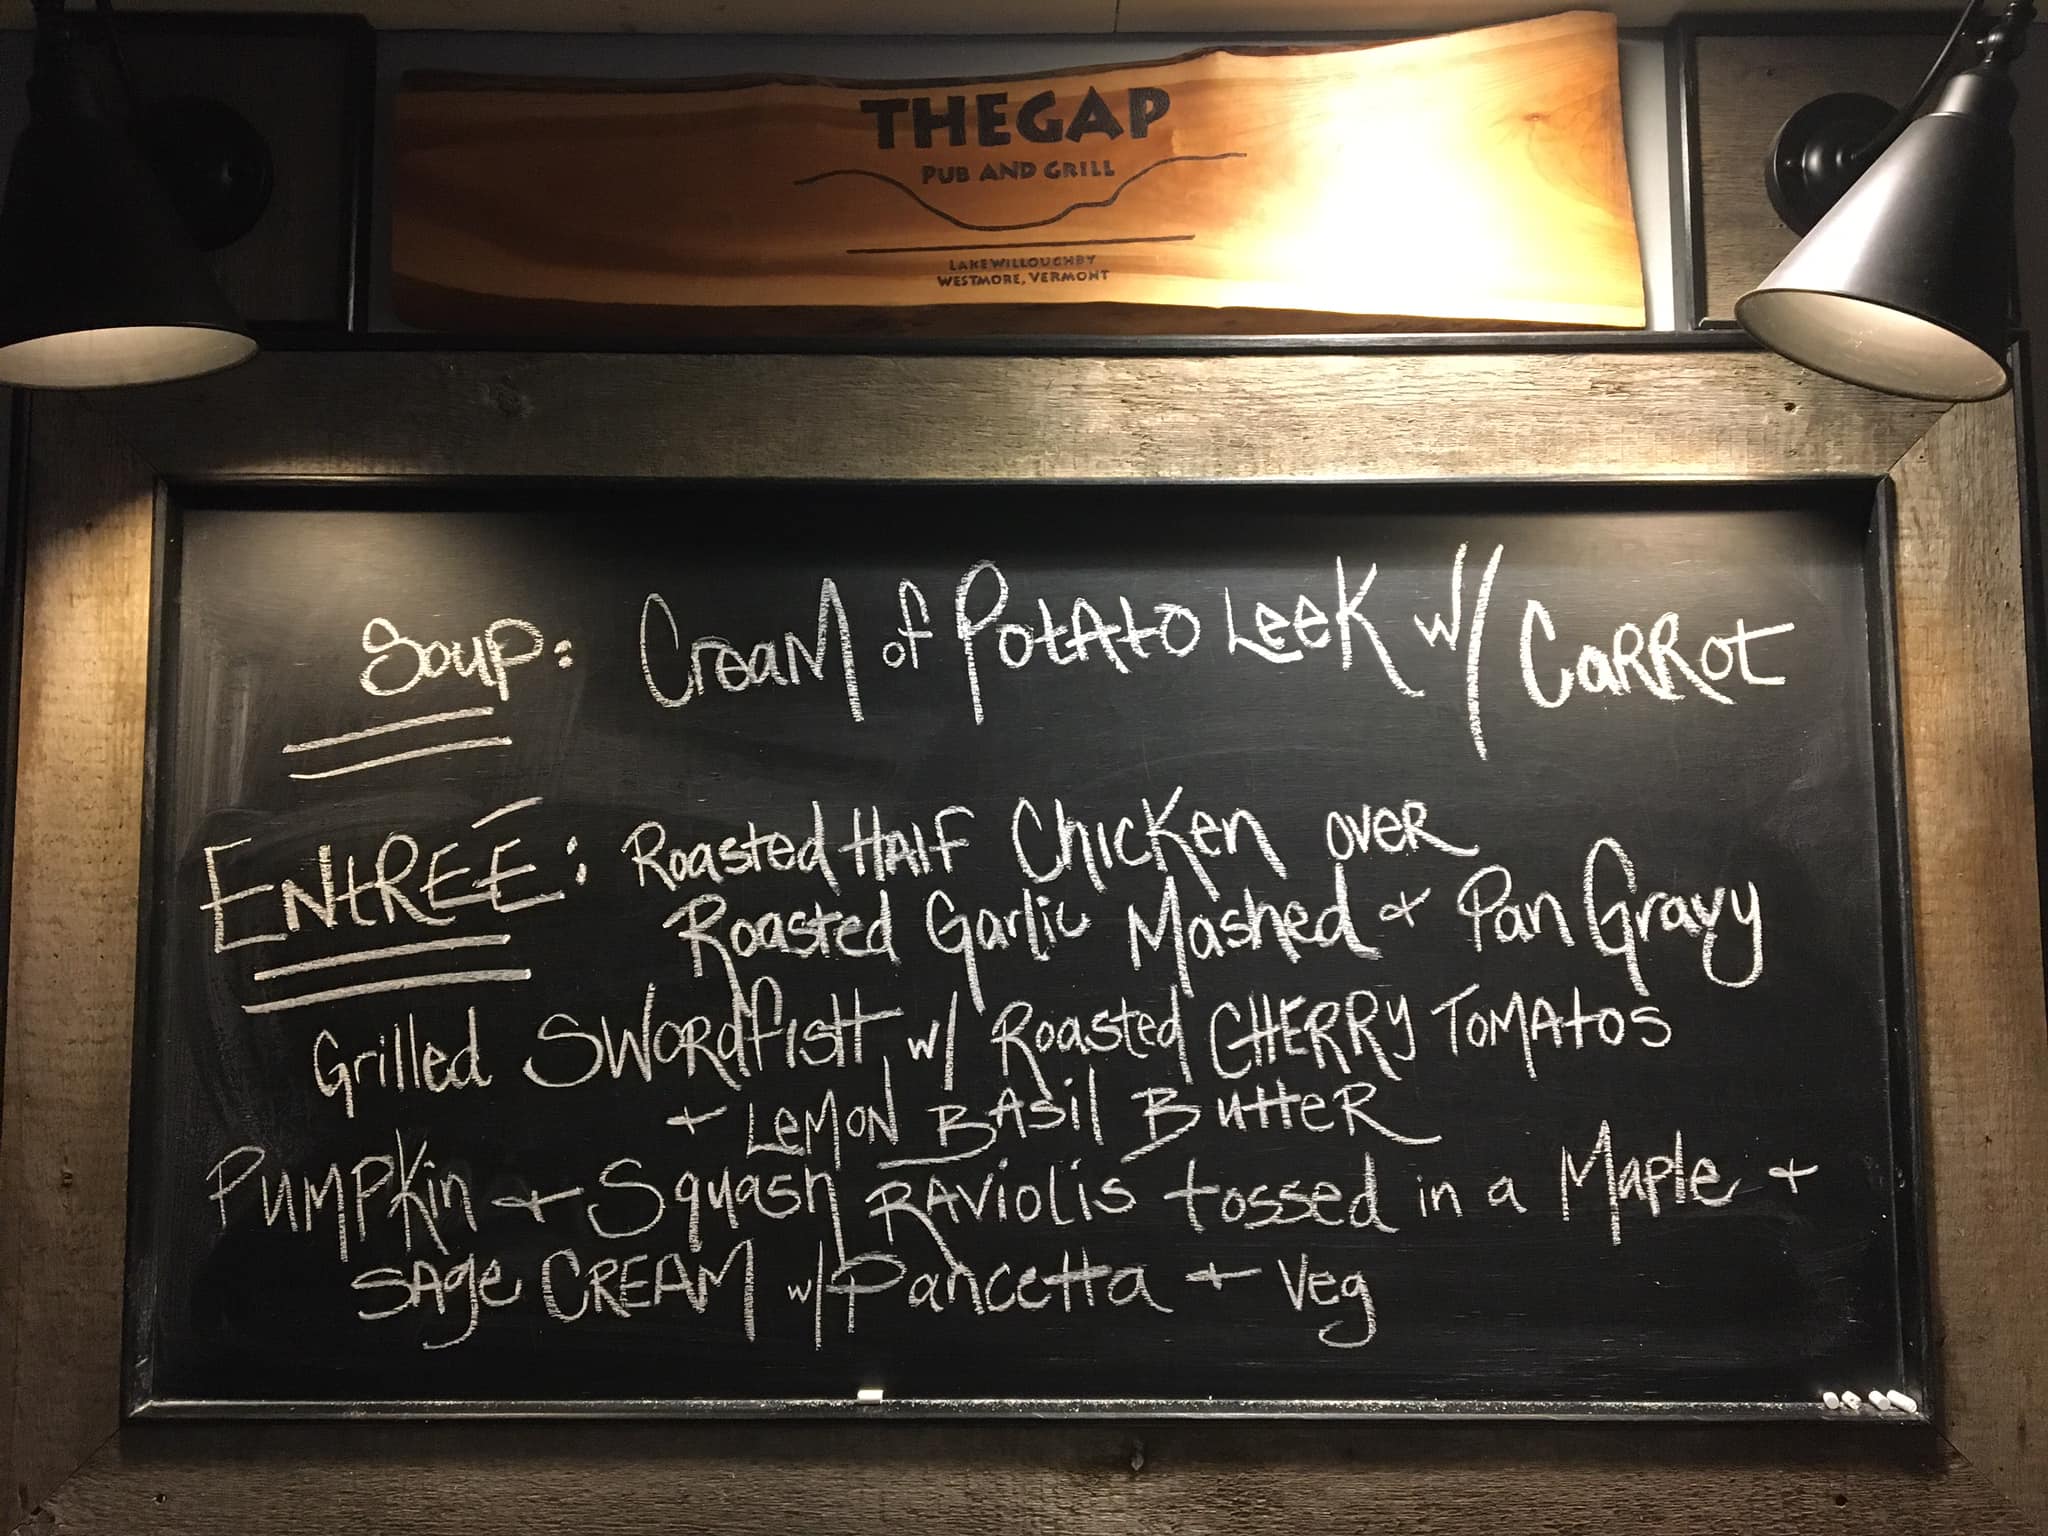 THE GAP
PUB AND GRILL
LAKE WILLOUGHBY
WESTMORE, VERMONT
Soup: CreaM of PotAto LeeK w/ CaRRot
ENtREÉ: Roasted HAlF ChicKen oveR
Roasted Garlic Mashed + Pan Gravy
Grilled SWORdfISH w/ Roasted CHERRY TOMAtos
+ LeMON BASil ButteR
PUMPKin + Squash RAViolis tossed in a Maple +
SAge CREAM w/ Pancetta + Veg